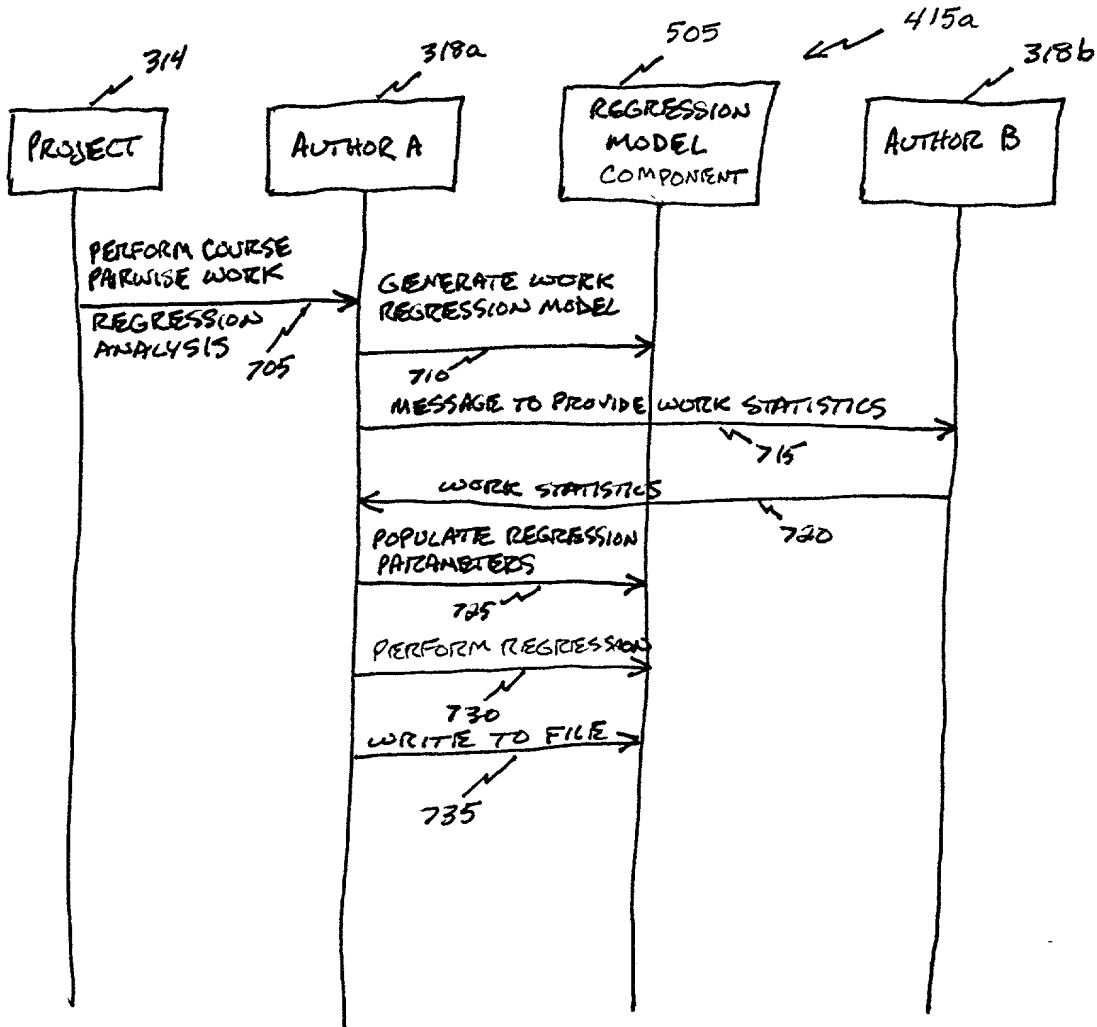 314
318a
505
415a
318b
PROJECT
AUTHOR A
REGRESSION
MODEL
COMPONENT
AUTHOR B
PERFORM COURSE
PAIRWISE WORK
REGRESSION
ANALYSIS
705
GENERATE WORK
REGRESSION MODEL
710
MESSAGE TO PROVIDE WORK STATISTICS
715
WORK STATISTICS
720
POPULATE REGRESSION
PARAMETERS
725
PERFORM REGRESSION
730
WRITE TO FILE
735